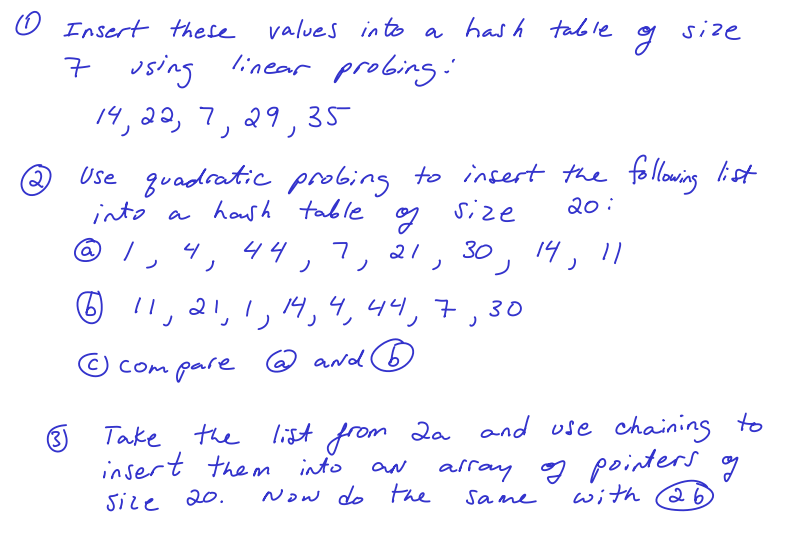 ① Insert these values into a hash table of size
7 using linear probing:
14, 22, 7, 29, 35
② Use quadratic probing to insert the following list
into a hash table of size 20:
ⓐ 1, 4, 44, 7, 21, 30, 14, 11
ⓑ 11, 21, 1, 14, 4, 44, 7, 30
ⓒ compare ⓐ and ⓑ
③ Take the list from 2a and use chaining to
insert them into an array of pointers of
size 20. Now do the same with 2b